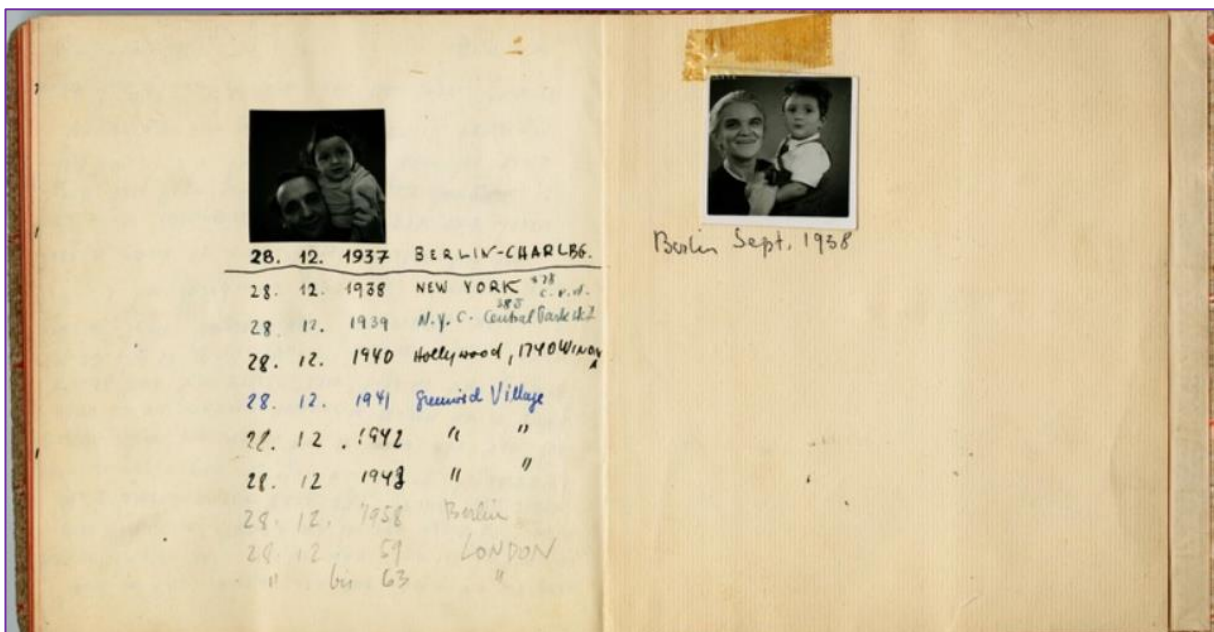 28. 12. 1937 BERLIN-CHARLBG.
28. 12. 1938 NEW YORK
28 12. 1939 N.Y.C. Central Park
28. 12. 1940 Hollywood, 1740
28. 12. 1941 Greenwich Village
28. 12. 1942 " "
28. 12 1943 " "
28. 12. 1958 Berlin
28 12 59 LONDON
" bis 63 "
Berlin Sept. 1938